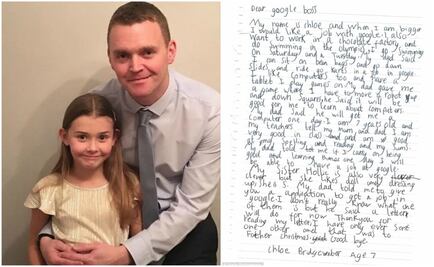 Dear google boss
My name is chloe and when I am bigger
I would like a job with google. I also
want to work in a chocolate factory and
do swimming in the olympics. I go swimming
on Saturday and a Wednesday. My dad said
I can sit on bean bags and go down
slides and ride go karts in a job in google.
I like computers too and have a
tablet I play games on. My dad gave me
a game where I have to move a robot up
and down squares, he said it will be
good for me to learn about computers.
My dad said he will get me a
computer one day. I am 7 years old and
my teachers tell my mum and dad I am
very good in class and am good at
my spelling and reading and my sums.
My dad told me that if I carry on being
good and learning then one day I will
be able to have a job at google.
My sister Hollie is also very
clever but she likes dolls and dressing
up, she is 5. My dad told me to give
you a application to get a job in
google. I don't really know what one
of them is but he said a letter
will do for now. Thank you for
reading my letter, I have only ever sent
one other and that was to
Father christmas. Good bye
Chloe Bridgewater Age 7